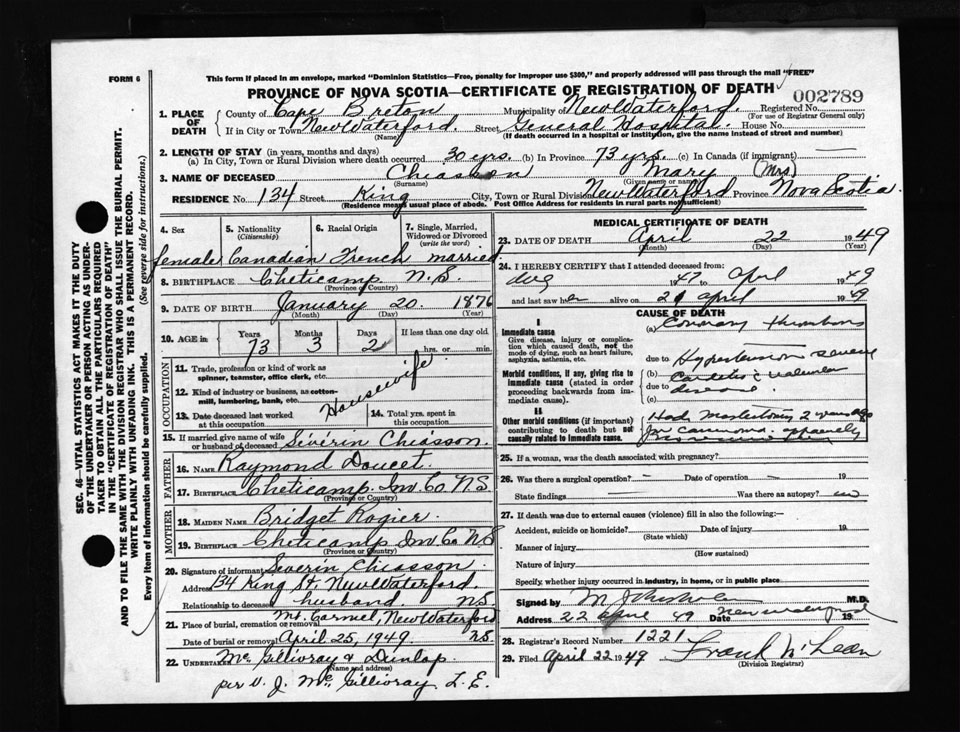 FORM 6
This form if placed in an envelope, marked "Dominion Statistics—Free, penalty for improper use $300," and properly addressed will pass through the mail "FREE"
PROVINCE OF NOVA SCOTIA—CERTIFICATE OF REGISTRATION OF DEATH
002789
1. PLACE OF DEATH
County of Cape Breton Municipality of New Waterford Registered No.
(For use of Registrar General only)
If in City or Town New Waterford. Street General Hospital House No.
(Name) (If death occurred in a hospital or institution, give the name instead of street and number)
2. LENGTH OF STAY (in years, months and days)
(a) In City, Town or Rural Division where death occurred 30 yrs. (b) In Province 73 yrs. (c) In Canada (if immigrant) —
3. NAME OF DECEASED Chiasson Mary (Mrs)
(Surname) (Given name or names)
RESIDENCE No. 134 Street King City, Town or Rural Division New Waterford Province Nova Scotia.
(Residence means usual place of abode. Post Office Address for residents in rural parts not sufficient)
4. Sex 5. Nationality (Citizenship) 6. Racial Origin 7. Single, Married, Widowed or Divorced (write the word)
female Canadian French married
8. BIRTHPLACE Cheticamp N.S
(Province or Country)
9. DATE OF BIRTH January 20. 1876
(Month) (Day) (Year)
10. AGE in Years Months Days If less than one day old
73 3 2 hrs. or min.
OCCUPATION
11. Trade, profession or kind of work as spinner, teamster, office clerk, etc.
12. Kind of industry or business, as cotton-mill, lumbering, bank, etc.
Housewife
13. Date deceased last worked at this occupation
14. Total yrs. spent in this occupation
15. If married give name of wife or husband of deceased Sévérin Chiásson.
FATHER
16. NAME Raymond Doucet.
17. BIRTHPLACE Cheticamp. Inv. Co. N.S.
(Province or Country)
MOTHER
18. MAIDEN NAME Bridget Rogier.
19. BIRTHPLACE Cheticamp Inv Co N.S
(Province or Country)
20. Signature of informant Severin Chiasson.
Address 134 King St. New Waterford.
Relationship to deceased husband N.S.
21. Place of burial, cremation or removal Mt. Carmel, New Waterford
Date of burial or removal April 25, 1949. N.S.
22. UNDERTAKER Mc Gillivray & Dunlap.
(Name and address)
per V. J. Mc Gillivray L. E.
MEDICAL CERTIFICATE OF DEATH
23. DATE OF DEATH April 22 1949
(Month) (Day) (Year)
24. I HEREBY CERTIFY that I attended deceased from:
Aug 1947 to April 1949
and last saw her alive on 21 April 1949
CAUSE OF DEATH
I
Immediate cause
Give disease, injury or complication which caused death, not the mode of dying, such as heart failure, asphyxia, asthenia, etc.
(a) Coronary thrombosis
due to Hypertension severe
Morbid conditions, if any, giving rise to immediate cause (stated in order proceeding backwards from immediate cause).
(b) Cardiac & valvular
due to disease.
(c)
II
Other morbid conditions (if important) contributing to death but not causally related to immediate cause.
Had mastectomy 2 years ago
for carcinoma. apparently
25. If a woman, was the death associated with pregnancy?
26. Was there a surgical operation? – Date of operation – 19
State findings — Was there an autopsy? no
27. If death was due to external causes (violence) fill in also the following:—
Accident, suicide or homicide? Date of injury 19
(State which)
Manner of injury
(How sustained)
Nature of injury
Specify whether injury occurred in industry, in home, or in public place
Signed by M J Chisholm M.D.
Address 22 April 49 Date New Waterford 19
28. Registrar's Record Number 1221
29. Filed April 22 1949 Frank McLean
(Division Registrar)
SEC. 46—VITAL STATISTICS ACT MAKES IT THE DUTY
OF THE UNDERTAKER OR PERSON ACTING AS UNDER-
TAKER TO OBTAIN ALL THE PARTICULARS REQUIRED
IN THE "CERTIFICATE OF REGISTRATION OF DEATH"
AND TO FILE THE SAME WITH THE DIVISION REGISTRAR WHO SHALL ISSUE THE BURIAL PERMIT.
WRITE PLAINLY WITH UNFADING INK. THIS IS A PERMANENT RECORD.
Every item of information should be carefully supplied. (See reverse side for instructions.)